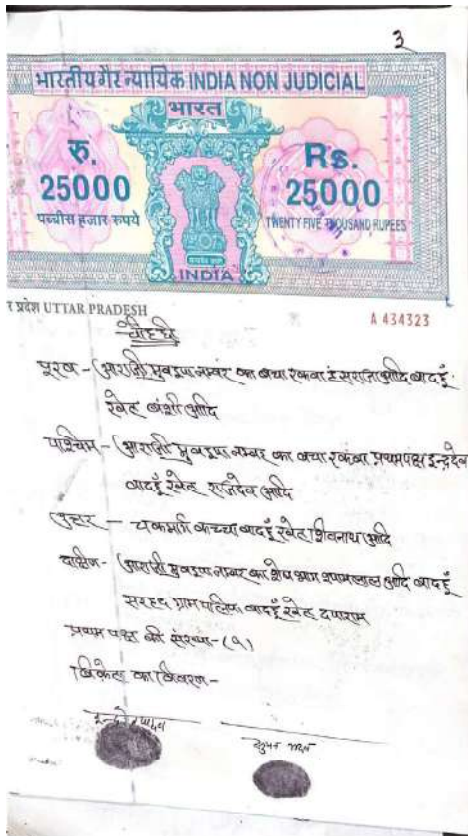 3
भारतीय गैर न्यायिक INDIA NON JUDICIAL
भारत
रु.
25000
पच्चीस हजार रुपये
Rs.
25000
TWENTY FIVE THOUSAND RUPEES
INDIA
र प्रदेश UTTAR PRADESH
A 434323
चौहद्दी
पूरब - आराजी मुबइया नम्बर का बचा रकबा हंसराज आदि बादहूँ
खेत बंशी आदि
पश्चिम - आराजी मुबइया नम्बर का बचा रकबा प्रथमपक्ष इन्द्रदेव
बादहूँ खेत राजदेव आदि
उत्तर - चकमार्ग कच्चा बादहूँ खेत शिवनाथ आदि
दक्षिण - आराजी मुबइया नम्बर का शेष भाग श्यामलाल आदि बादहूँ
सरहद ग्राम बादहूँ खेत दयाराम
प्रथम पक्ष की संख्या - (१)
विक्रेता का विवरण -